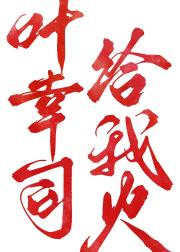 叶幸司
给我火